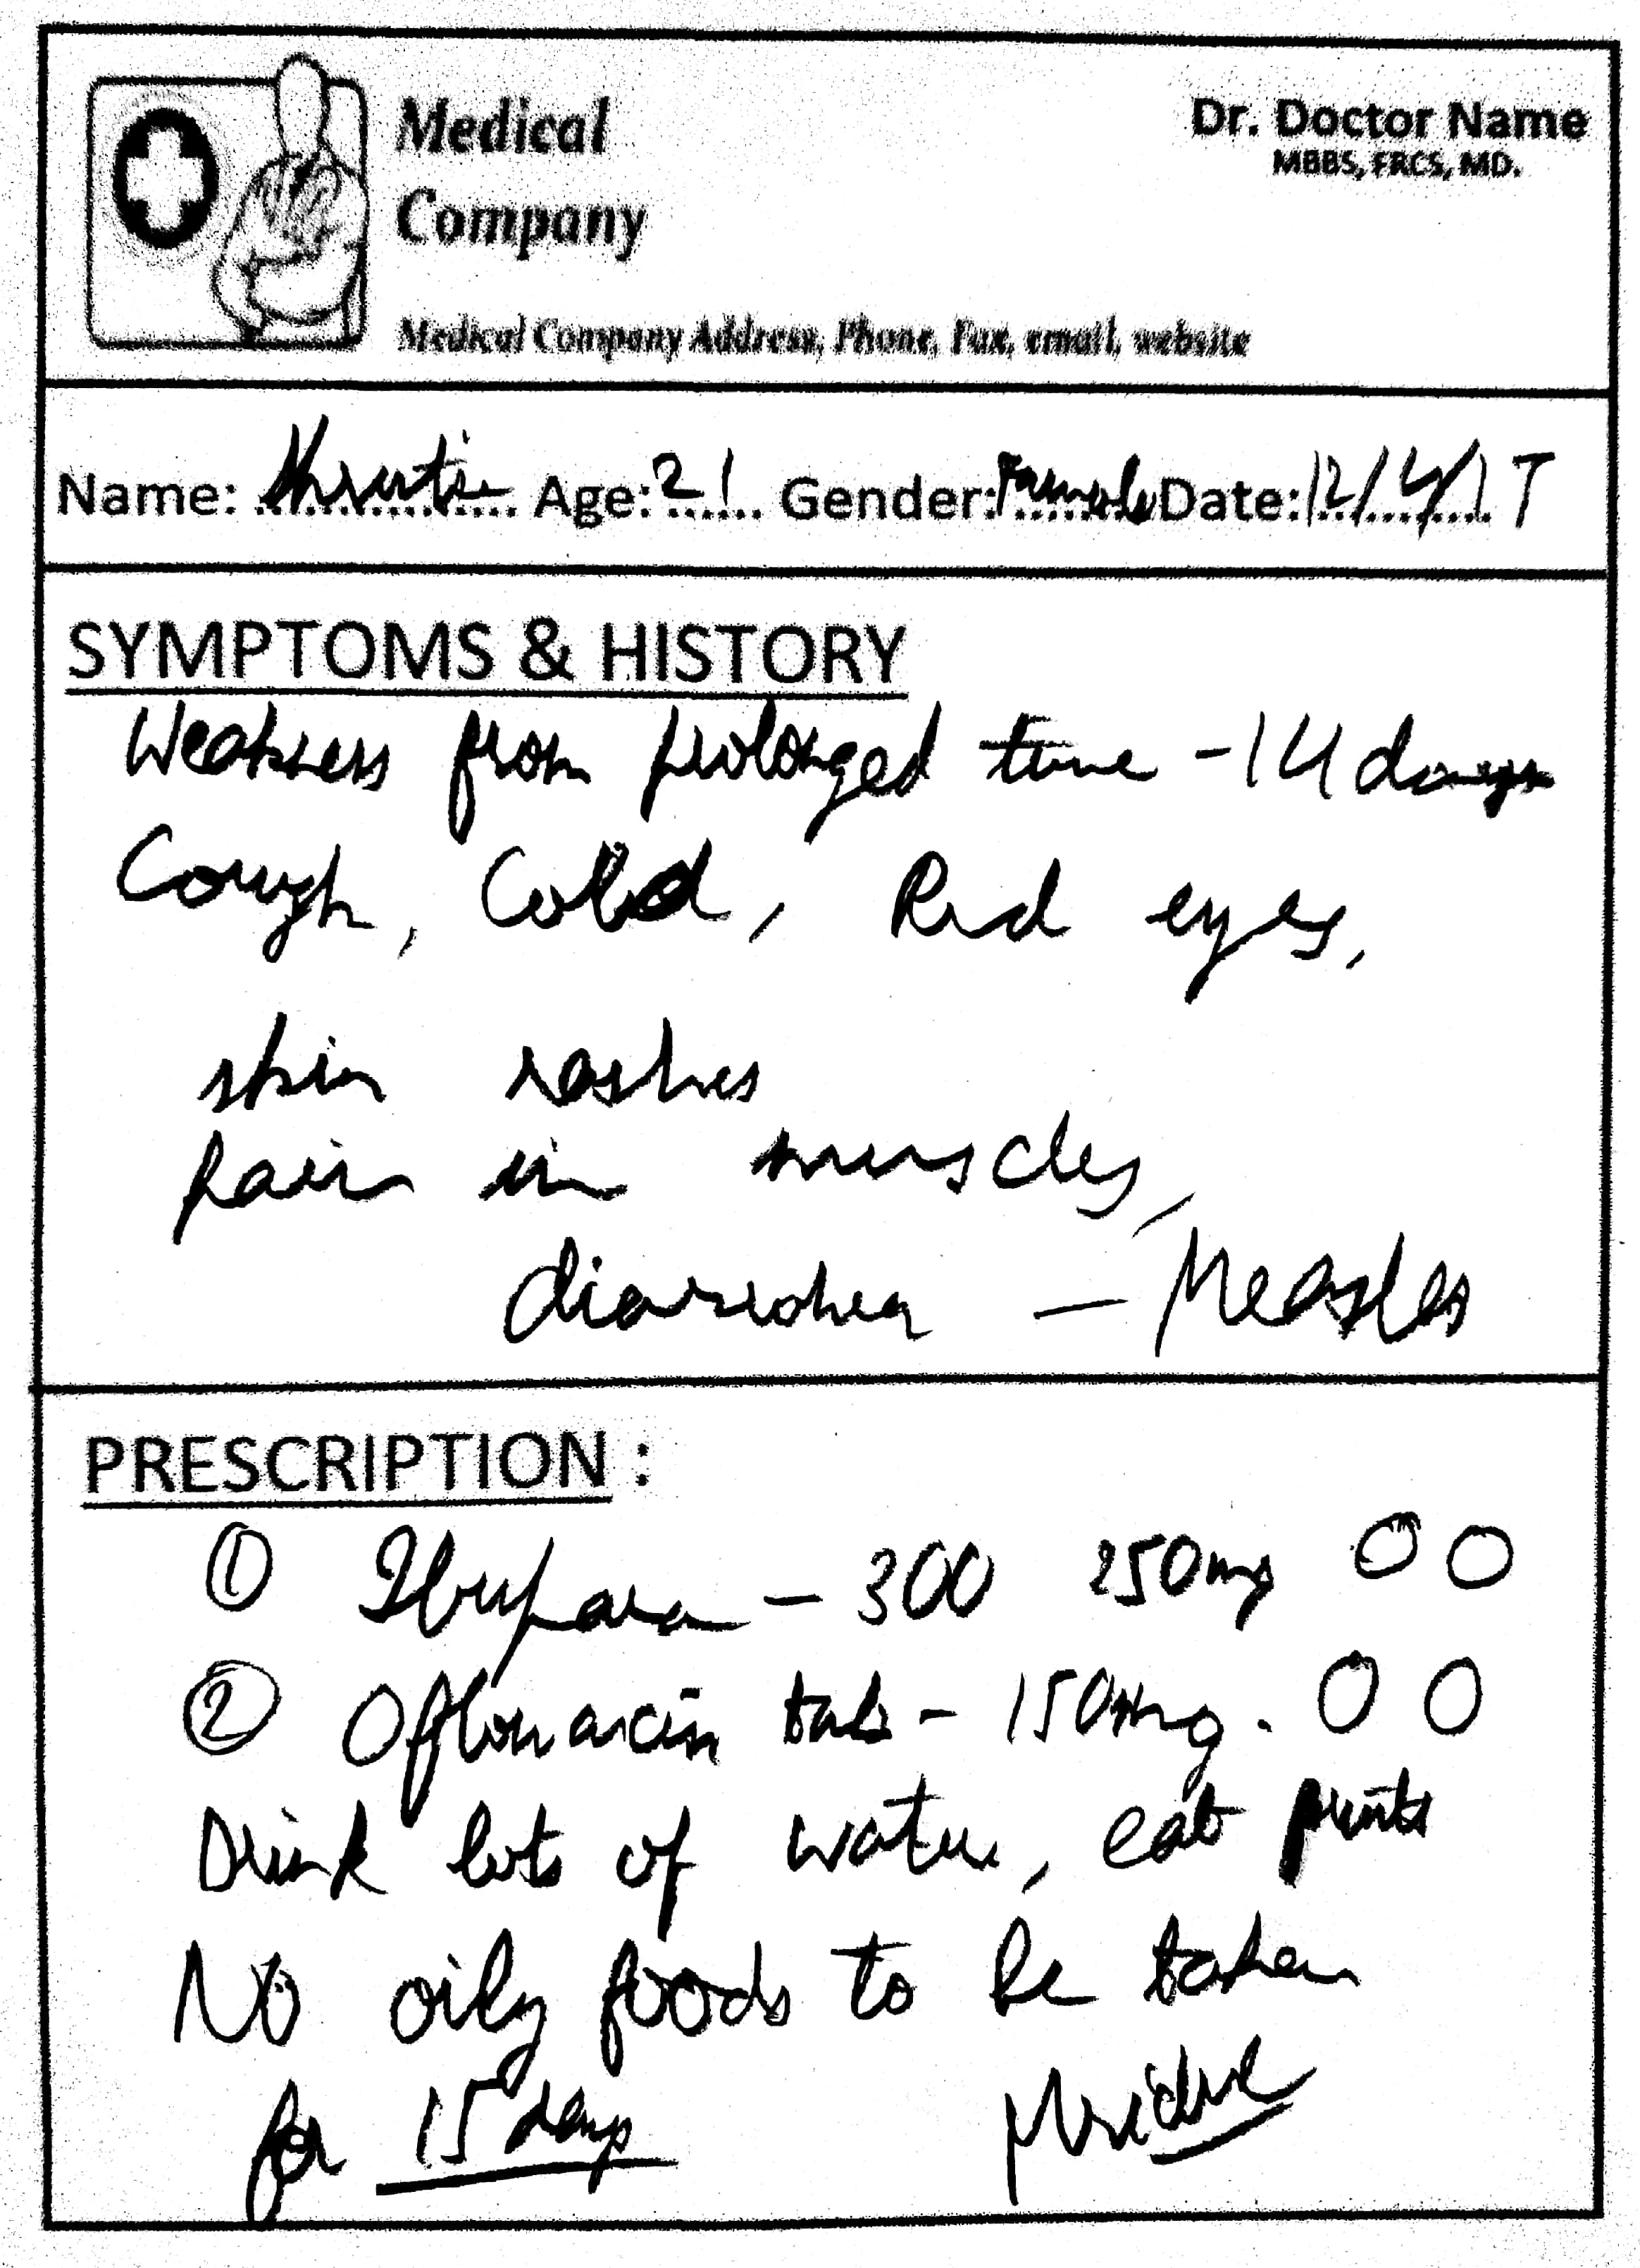 Medical
Company
Dr. Doctor Name
MBBS, FRCS, MD.
Medical Company Address, Phone, Fax, email, website
Name: Shruti Age: 21 Gender: Female Date: 12/4/17
SYMPTOMS & HISTORY
Weakness from prolonged time - 14 days
Cough, Cold, Red eyes,
skin rashes
Pain in muscles,
diarrohea — Measles
PRESCRIPTION :
① Ibupara - 300 250mg O O
② tab - 150mg. O O
Drink lots of water, eat fruits
No oily foods to be taken
for 15 days